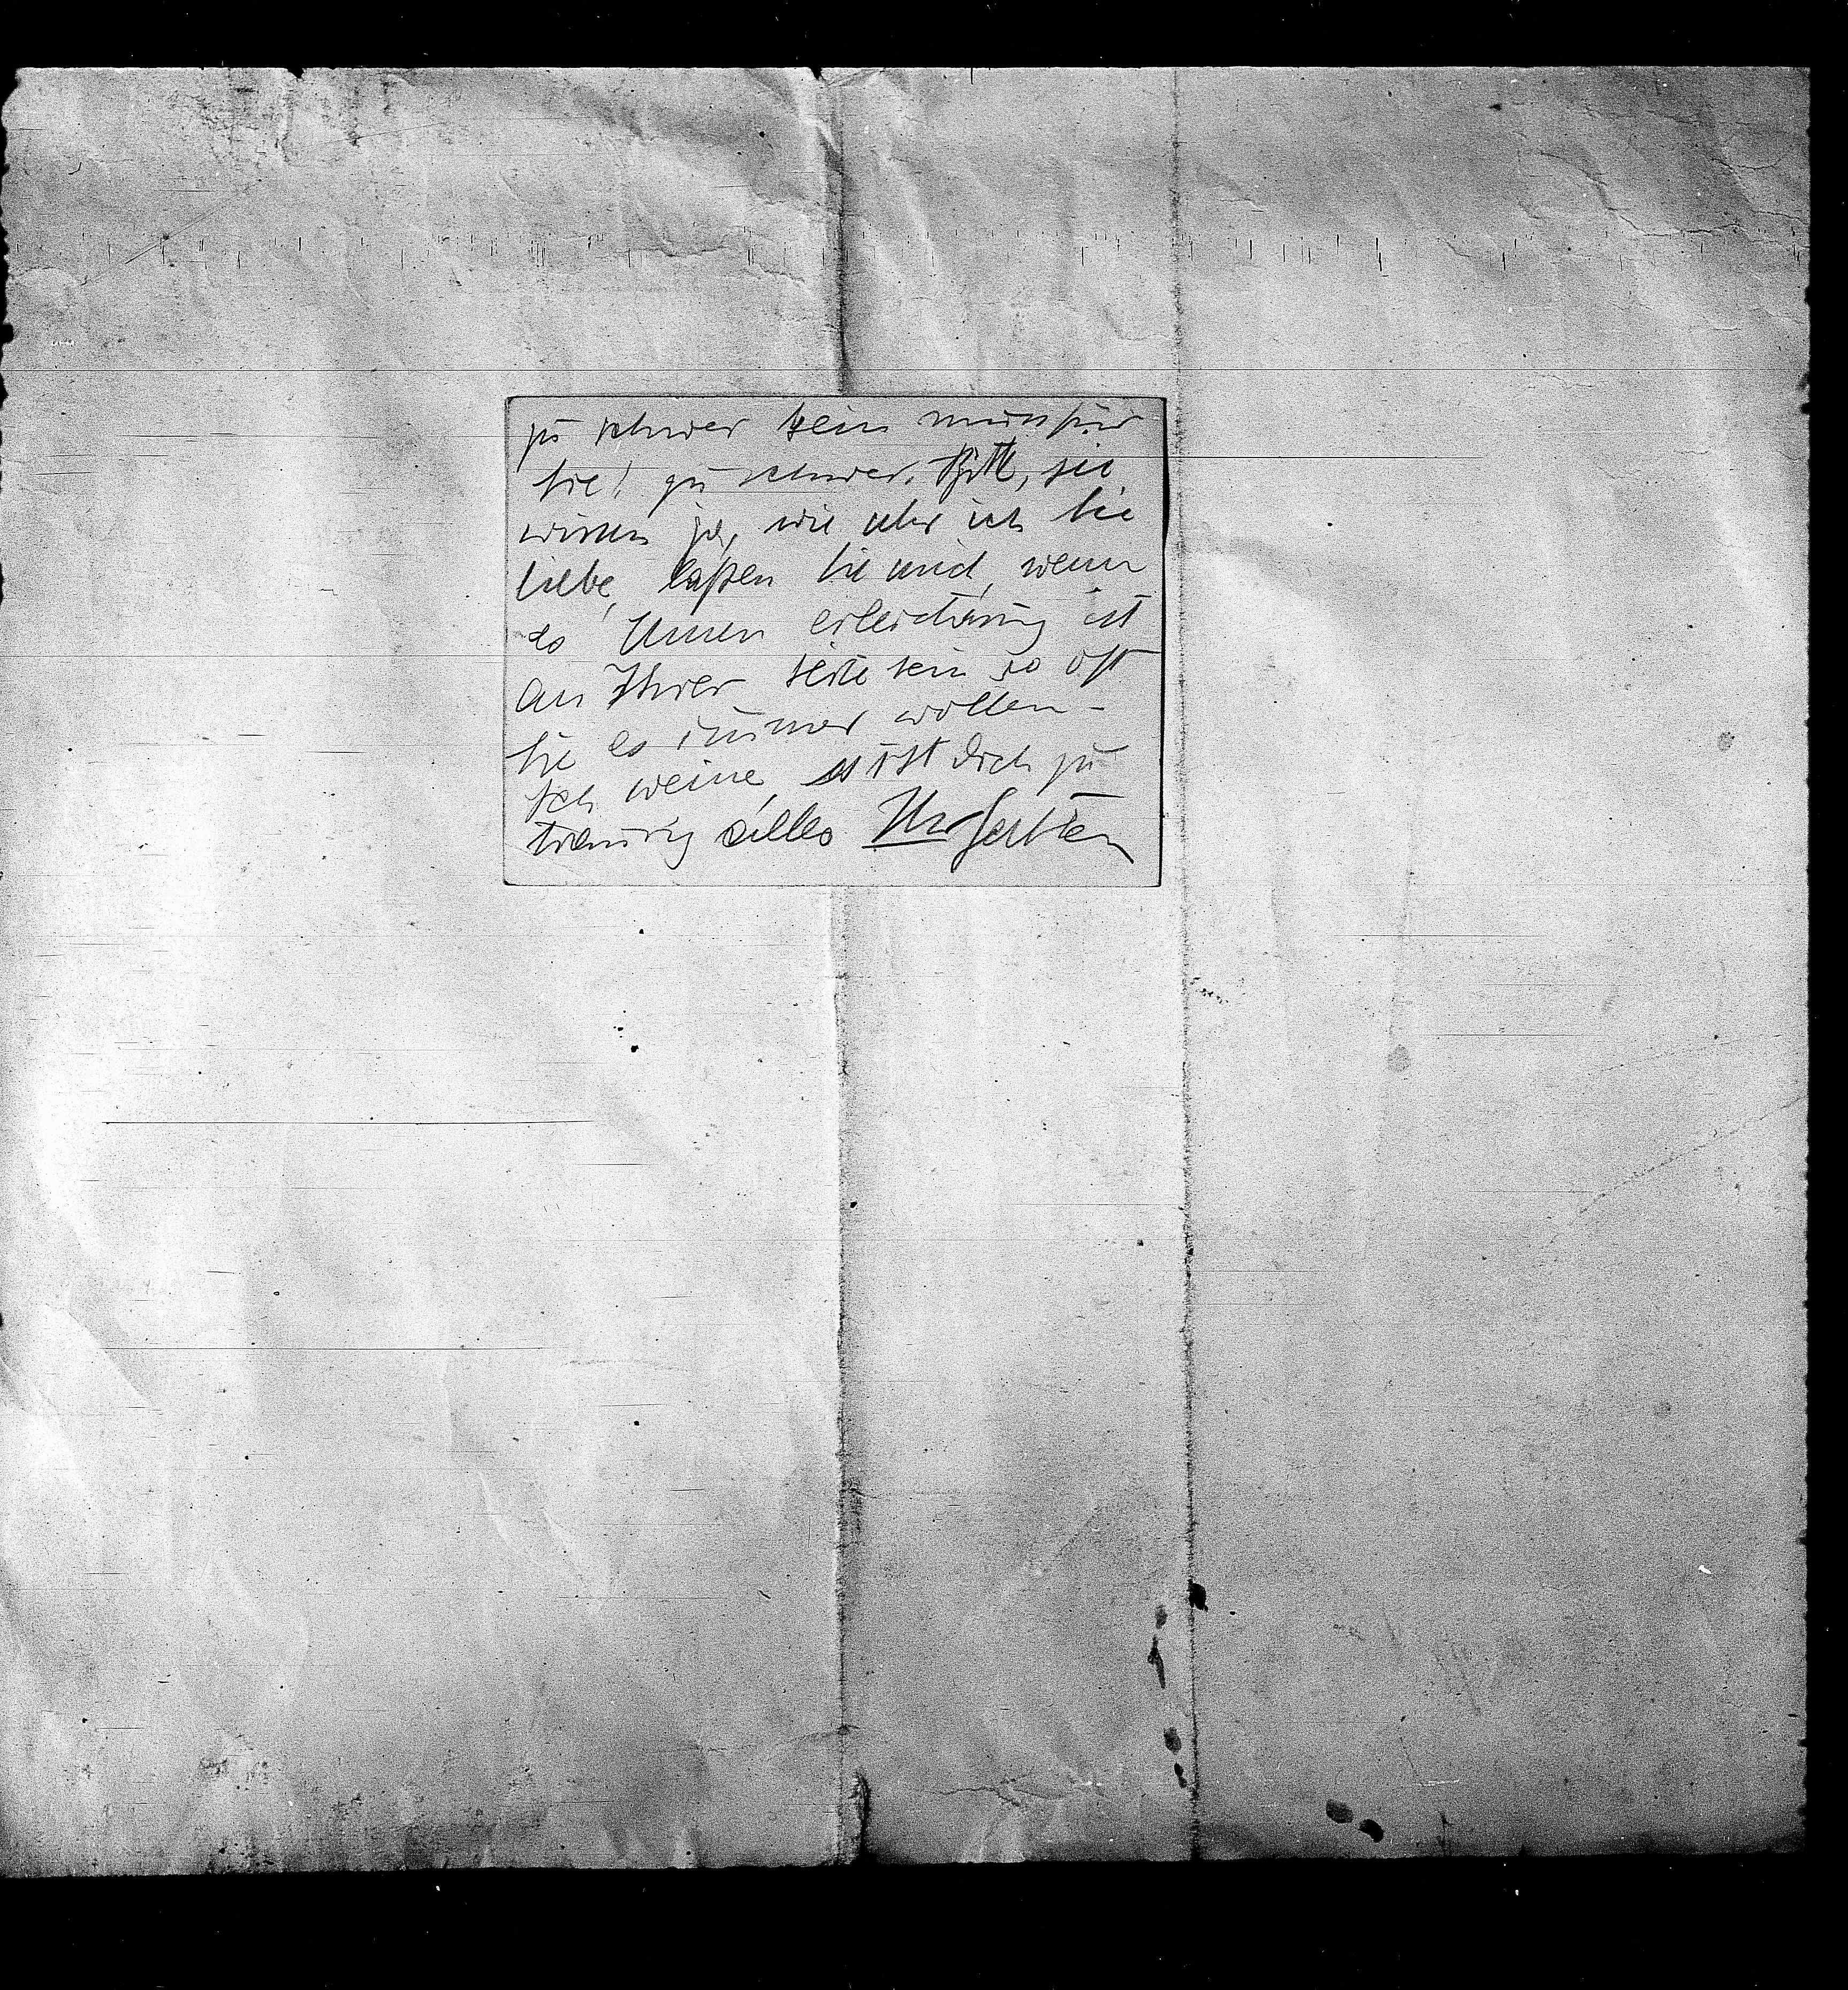 zu schwer sein muss für
Sie! zu schwer. Bitte, sie
wissen ja, wie sehr ich Sie
liebe, laßen Sie mich, wenn
es Ihnen erleichterung ist
an Ihrer seite sein so oft
Sie es immer wollen -
Ich weine, es ist doch zu
traurig alles Ihr